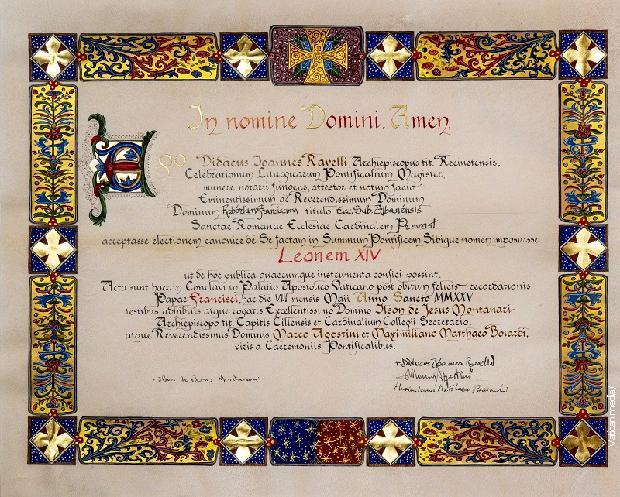 In nomine Domini. Amen
Ego Didacus Ioannes Ravelli Archiepiscopus tit. Recinetensis,
Celebrationum Liturgicarum Pontificalium Magister,
munere notarii functus, attestor et notum facio
Eminentissimum ac Reverendissimum Dominum
Dominum Franciscum titulo Ecc. Sub. Albanensis
Sanctae Romanae Ecclesiae Cardinalem Prevost
acceptasse electionem canonice de Se factam in Summum Pontificem Sibique nomen imposuisse
Leonem XIV
ut de hoc publica quaecumque instrumenta confici possint.
Acta sunt haec in Conclavi in Palatio Apostolico Vaticano post obitum felicis recordationis
Papae Francisci, hac die VIII mensis Maii Anno Sancto MMXXV
testibus adhibitis atque rogatis Excellentissimo Domino Ilson de Jesus Montanari
Archiepiscopo tit. Capitis Cillensis et Cardinalium Collegii Secretario
atque Reverendissimis Dominis Marco Agostini et Maximiliano Matthaeo Boiardi,
viris a Caeremoniis Pontificalibus.
Vatican Media/